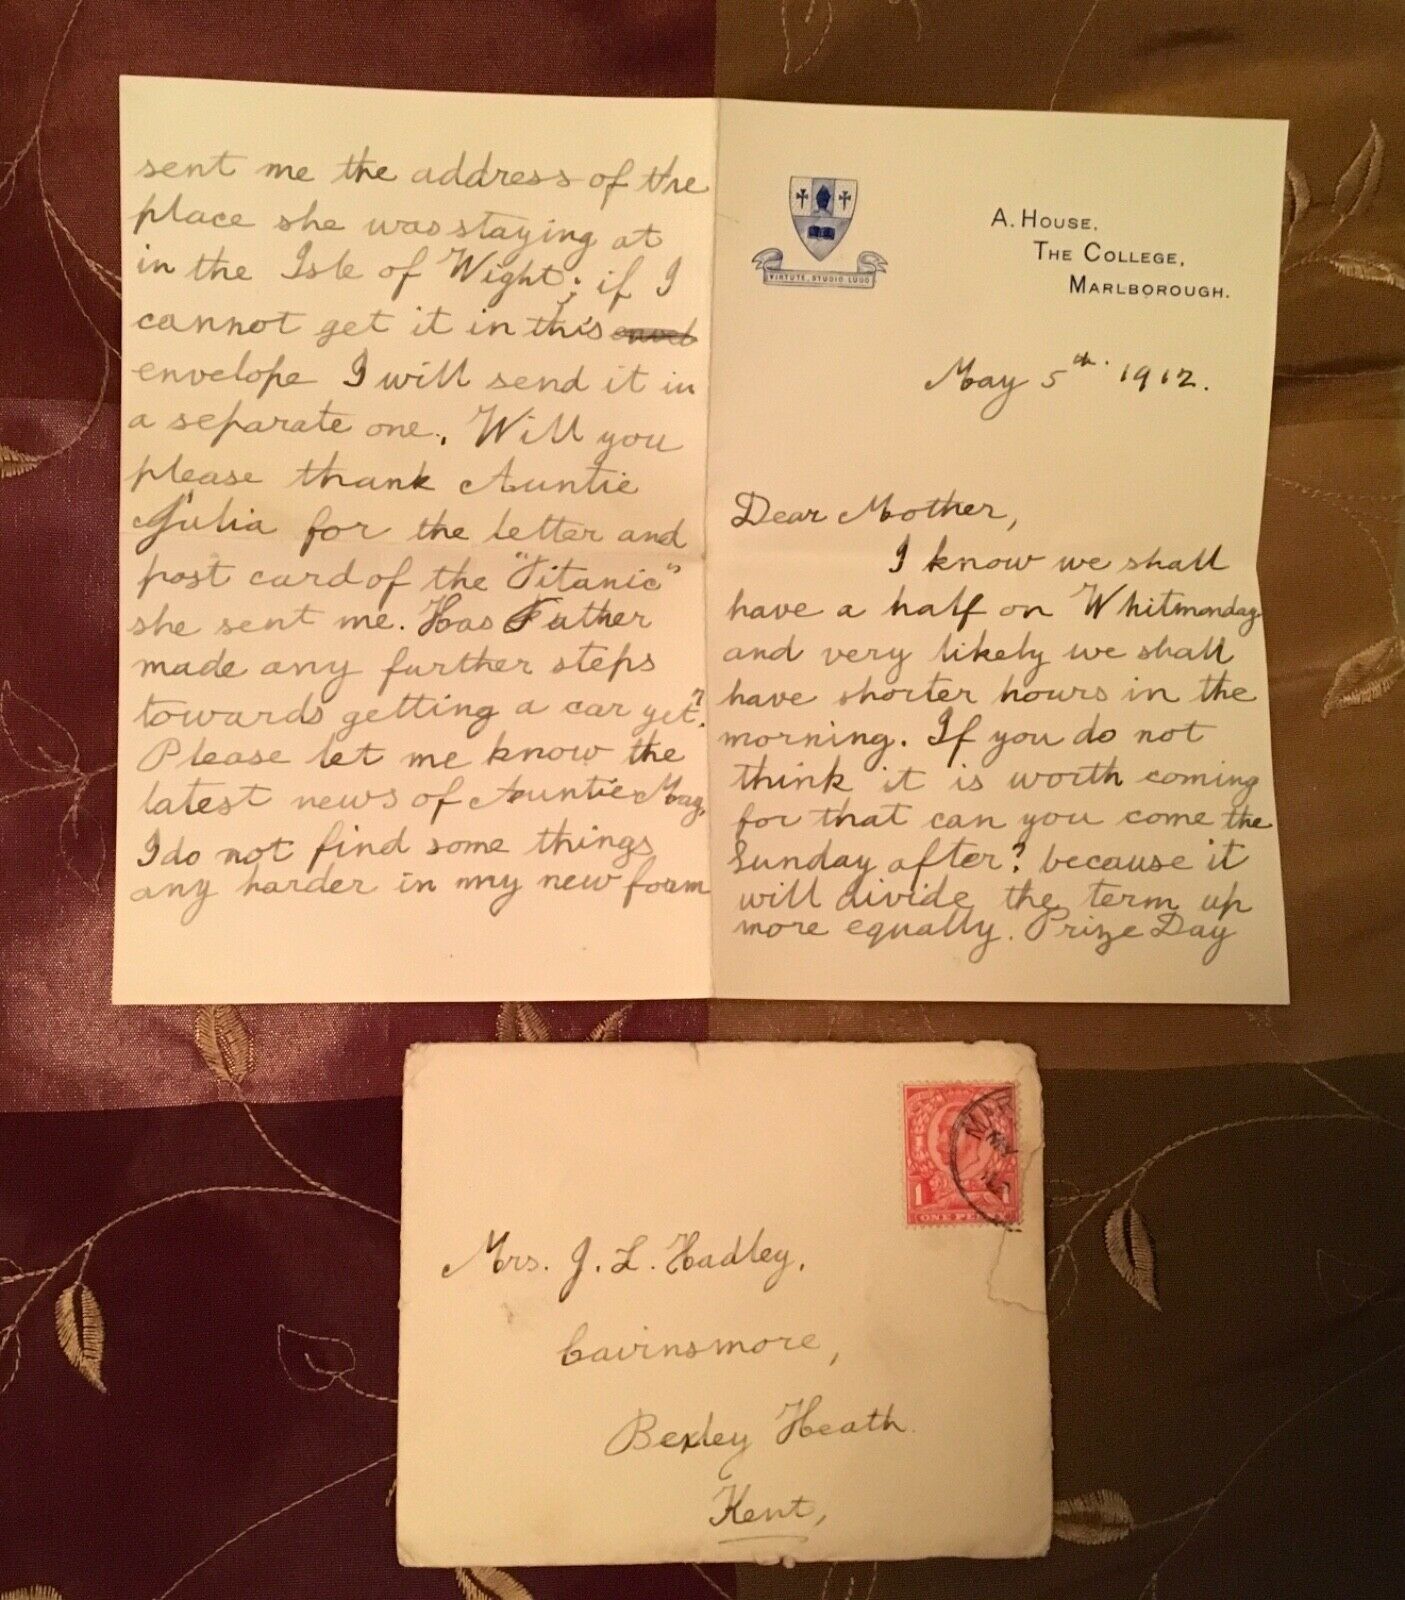 VIRTUTE, STUDIO LUDO
A. HOUSE.
THE COLLEGE,
MARLBOROUGH.
May 5th. 1912.
Dear Mother,
I know we shall
have a half on Whitmonday
and very likely we shall
have shorter hours in the
morning. If you do not
think it is worth coming
for that can you come the
Sunday after? because it
will divide the term up
more equally. Prize Day
sent me the address of the
place she was staying at
in the Isle of Wight; if I
cannot get it in this
envelope I will send it in
a separate one. Will you
please thank Auntie
Julia for the letter and
post card of the "Titanic"
she sent me. Has Father
made any further steps
towards getting a car yet?
Please let me know the
latest news of Auntie Mag,
I do not find some things
any harder in my new form
MAR
MY
1
ONE PENNY
Mrs. J. L. Hadley,
Cavinsmore,
Bexley Heath.
Kent,